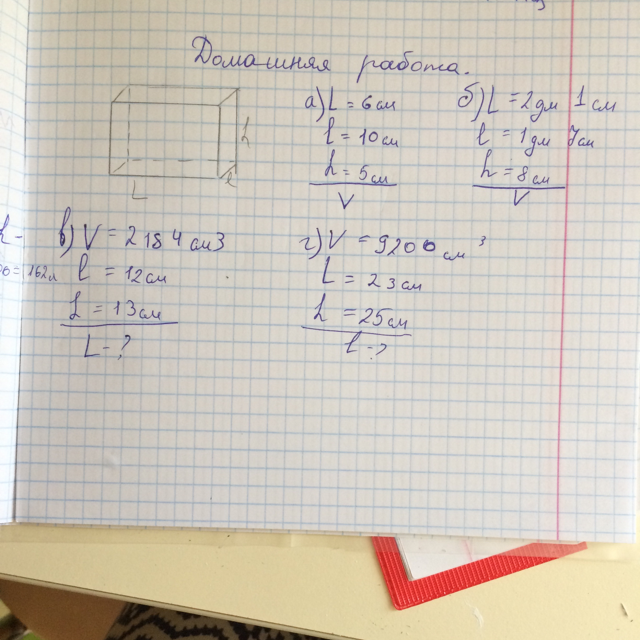 Домашняя работа.
а) L = 6 см
l = 10 см
h = 5 см
V
б) L = 2 дм 1 см
l = 1 дм 7 см
h = 8 см
V
h
L
l
в) V = 2184 см3
l = 12 см
h = 13 см
L - ?
г) V = 9200 см³
L = 23 см
h = 25 см
l - ?
= 162